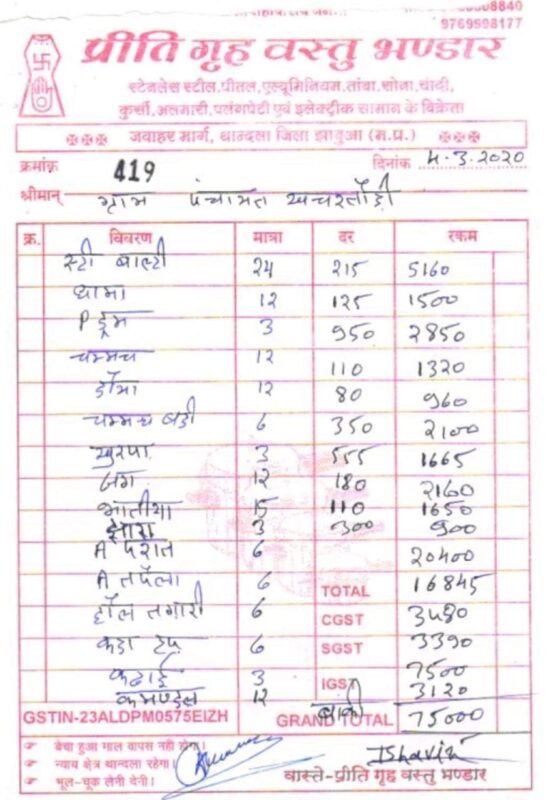 9769998177
प्रीति गृह वस्तु भण्डार
स्टेनलेस स्टील,पीतल,एल्यूमिनियम,तांबा,सोना,चांदी,
कुर्सी,अलमारी,पलंगपेटी एवं इलेक्ट्रीक सामान के विक्रेता
जवाहर मार्ग, थान्दला जिला झाबुआ (म.प्र.)
क्रमांक 419 दिनांक 4.3.2020
श्रीमान् ग्राम पंचायत
क्र. विवरण मात्रा दर रकम
स्टी बाल्टी 24 215 5160
धामा 12 125 1500
P ड्रम 3 950 2850
चम्मच 12 110 1320
डोया 12 80 960
चम्मच बडी 6 350 2100
खुरपा 3 555 1665
जग 12 180 2160
भातीया 15 110 1650
झारा 3 300 900
A परात 6 20400
A तपेला 6 TOTAL 16845
होल तगारी 6 CGST 3480
कडा टप 6 SGST 3390
कढाई 3 IGST 7500
कमण्डल 12 3120
GSTIN-23ALDPM0575EIZH GRAND TOTAL बाकी 75000
बेचा हुआ माल वापस नही होगा।
न्याय क्षेत्र थान्दला रहेगा।
भूल-चूक लेनी देनी। वास्ते-प्रीति गृह वस्तु भण्डार